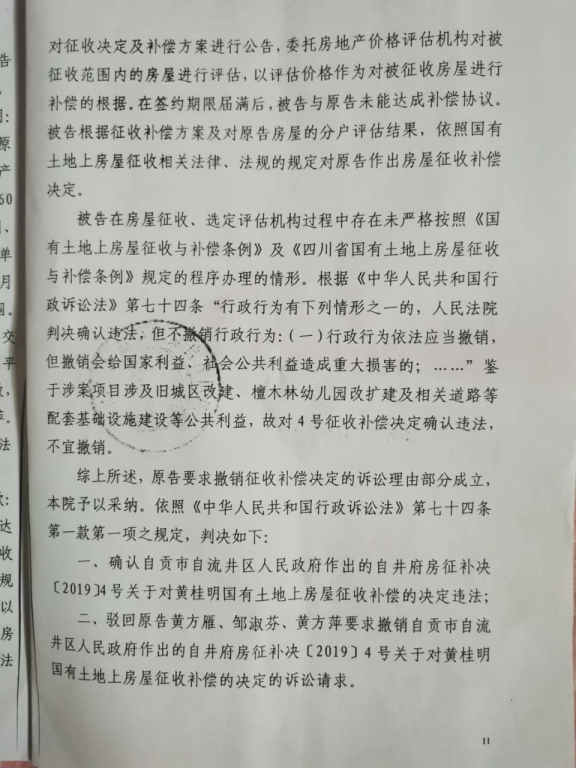 对征收决定及补偿方案进行公告，委托房地产价格评估机构对被
征收范围内的房屋进行评估，以评估价格作为对被征收房屋进行
补偿的根据。在签约期限届满后，被告与原告未能达成补偿协议。
被告根据征收补偿方案及对原告房屋的分户评估结果，依照国有
土地上房屋征收相关法律、法规的规定对原告作出房屋征收补偿
决定。
被告在房屋征收、选定评估机构过程中存在未严格按照《国
有土地上房屋征收与补偿条例》及《四川省国有土地上房屋征收
与补偿条例》规定的程序办理的情形。根据《中华人民共和国行
政诉讼法》第七十四条“行政行为有下列情形之一的，人民法院
判决确认违法，但不撤销行政行为：（一）行政行为依法应当撤销，
但撤销会给国家利益、社会公共利益造成重大损害的；……”鉴
于涉案项目涉及旧城区改建、檀木林幼儿园改扩建及相关道路等
配套基础设施建设等公共利益，故对4号征收补偿决定确认违法，
不宜撤销。
综上所述，原告要求撤销征收补偿决定的诉讼理由部分成立，
本院予以采纳。依照《中华人民共和国行政诉讼法》第七十四条
第一款第一项之规定，判决如下：
一、确认自贡市自流井区人民政府作出的自井府房征补决
〔2019〕4号关于对黄桂明国有土地上房屋征收补偿的决定违法；
二、驳回原告黄方雁、邹淑芬、黄方萍要求撤销自贡市自流
井区人民政府作出的自井府房征补决〔2019〕4号关于对黄桂明
国有土地上房屋征收补偿的决定的诉讼请求。
11